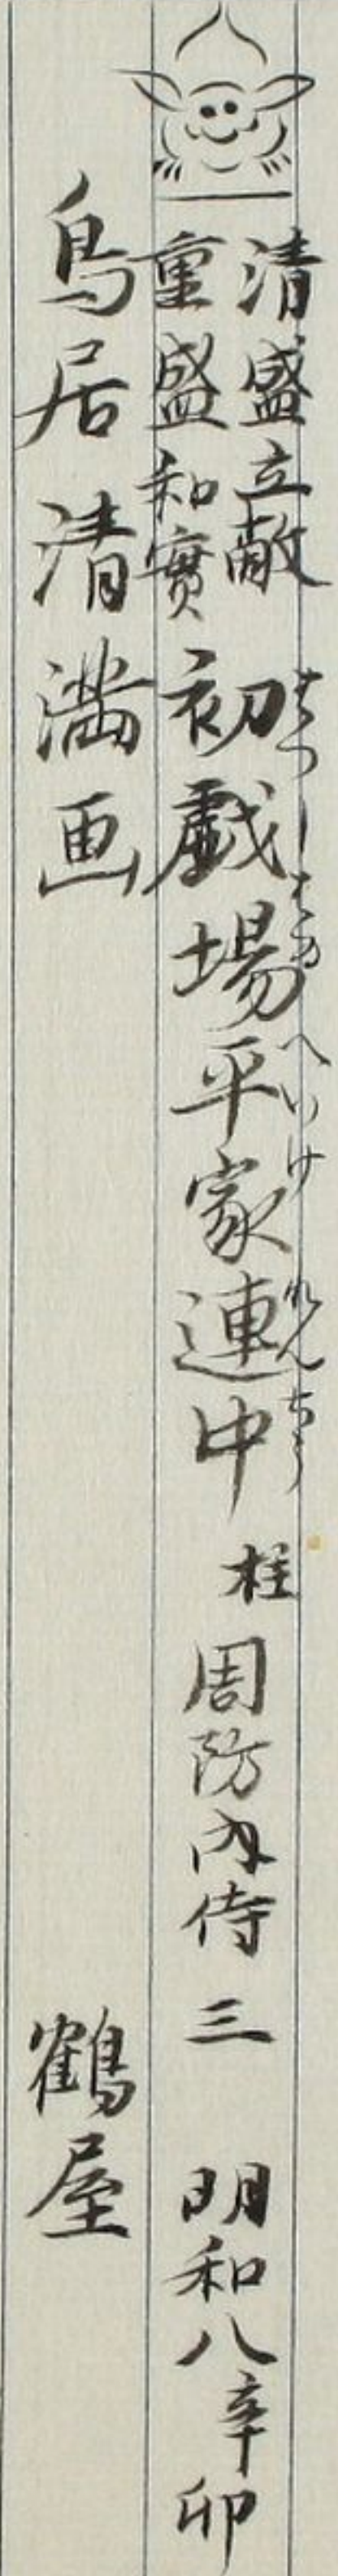 清盛立敵
重盛和實
初戯場平家連中
はつしばゐへいけれんちう
柱周防内侍 三 明和八辛卯
鳥居清満画 鶴屋